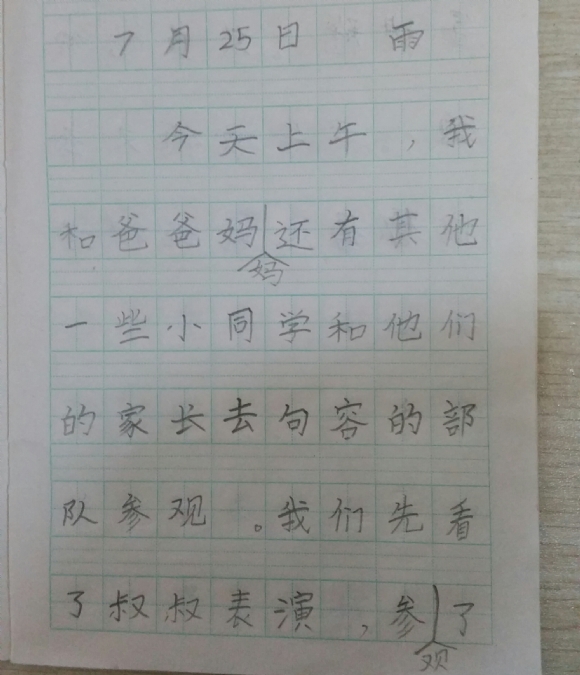 7月25日 雨
今天上午,我
和爸爸妈妈还有其他
一些小同学和他们
的家长去句容的部
队参观。我们先看
了叔叔表演,参观了